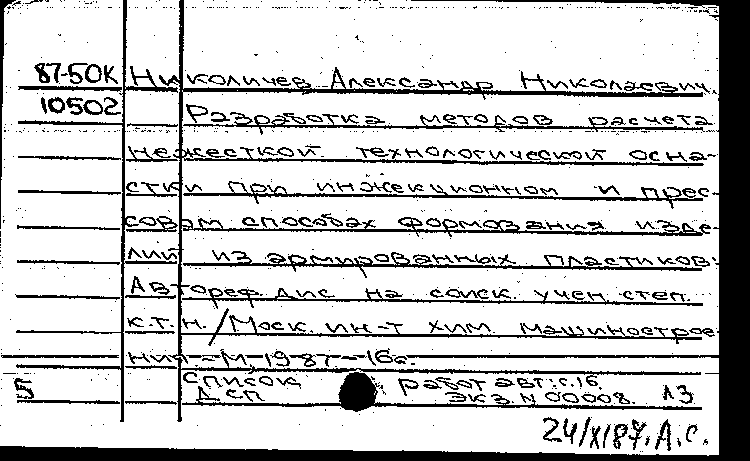 87-50К Николичев Александр Николаевич.
10502 Разработка методов расчета
нежесткой технологической осна-
стки при инжекционном и прес-
совом способах формования изде-
лий из армированных пластиков:
Автореф. дис на соиск. учен. степ.
к.т.н. / Моск. ин-т хим. машинострое-
ния - М., 1987 - 16с.
5 Список работ авт.: с.16.
ДСП ЭКЗ. N 00008. АЗ
24/XI87. А.С.